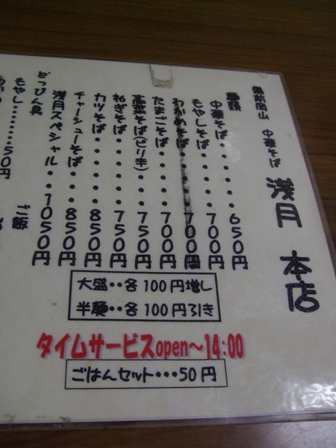 備前岡山 中華そば 浅月 本店
麺類
中華そば・・・・650円
もやしそば・・・700円
わかめそば・・・700円
たまごそば・・・750円
高菜そば(ピリ辛)・・750円
ねぎそば・・・・750円
カツそば・・・・850円
チャーシューそば・・850円
浅月スペシャル・・1050円
とっぴん具
もやし・・・・・50円
ご飯
大盛・・各100円増し
半麺・・各100円引き
タイムサービスopen～14:00
ごはんセット・・・50円